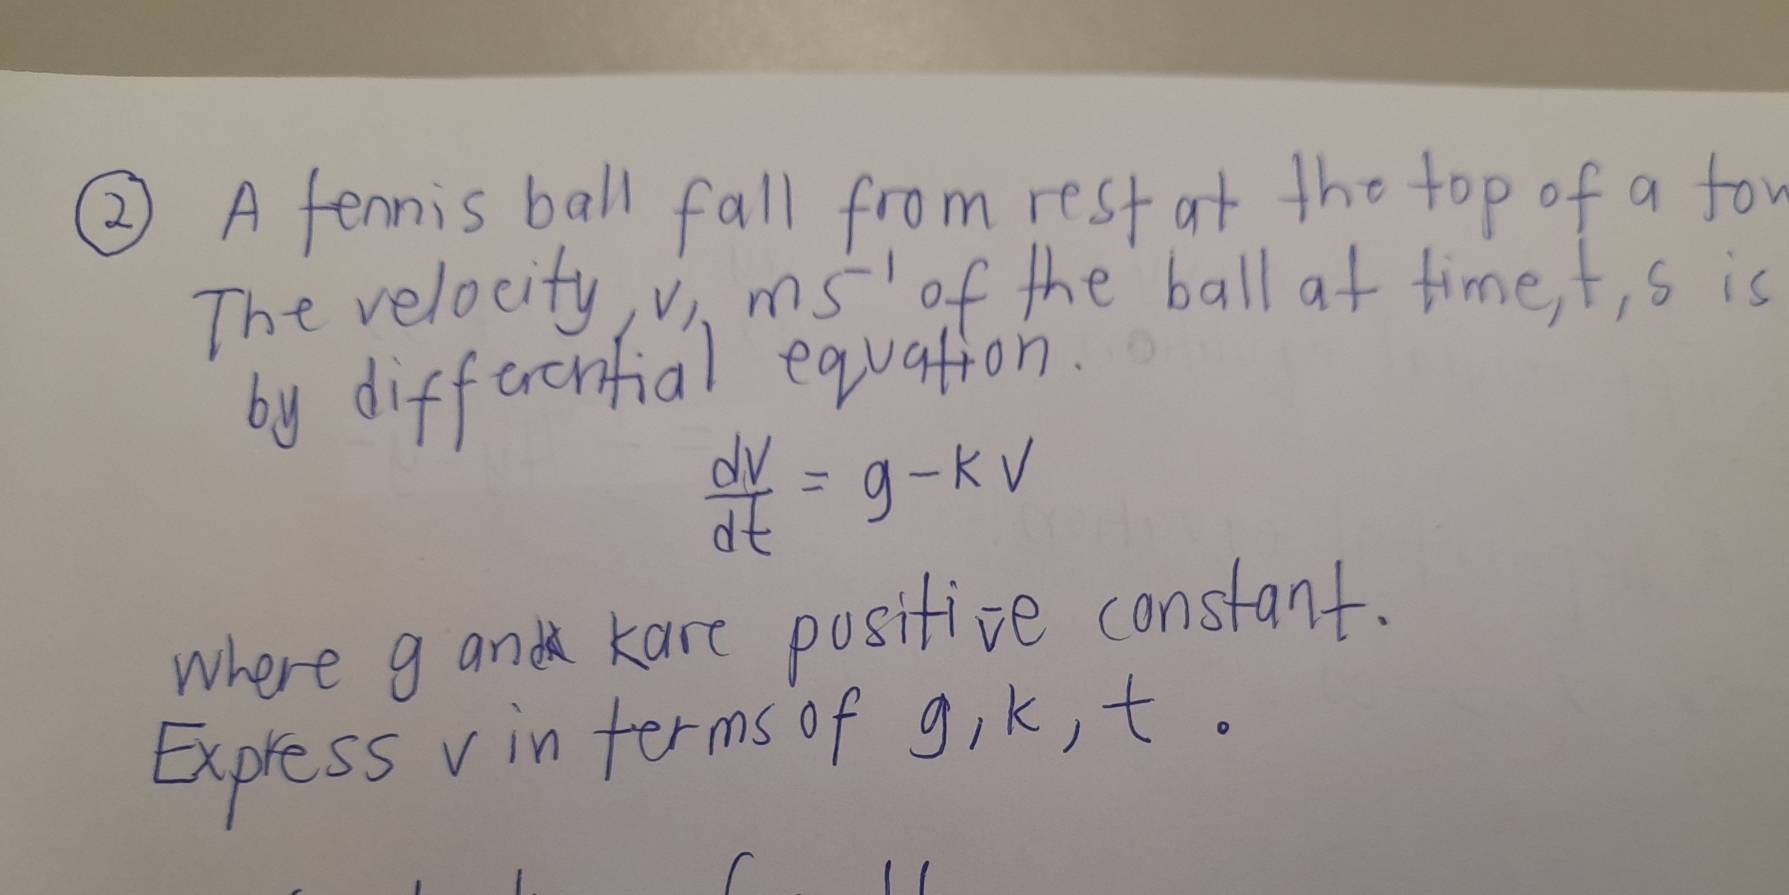 ② A tennis ball fall from rest at the top of a tow
The velocity, v, ms⁻¹ of the ball at time, t, s is
by differential equation.
dv/dt = g - kv
where g and k are positive constant.
Express v in terms of g, k, t.